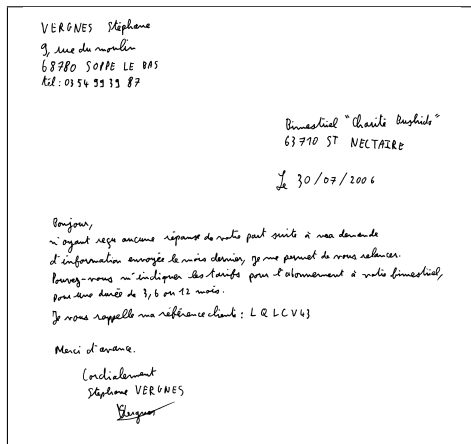 VERGNES Stéphane
9, rue du moulin
68780 SOPPE LE BAS
tél : 03 54 99 39 87
Bimestriel "Charité Bushido"
63710 ST NECTAIRE
Le 30/07/2006
Bonjour,
n'ayant reçu aucune réponse de votre part suite à ma demande
d'information envoyée le mois dernier, je me permet de vous relancer.
Pouvez-vous m'indiquer les tarifs pour l'abonnement à votre bimestriel,
pour une durée de 3, 6 ou 12 mois.
Je vous rappelle ma référence cliente : LQLCV43
Merci d'avance.
Cordialement
Stéphane VERGNES
Vergnes